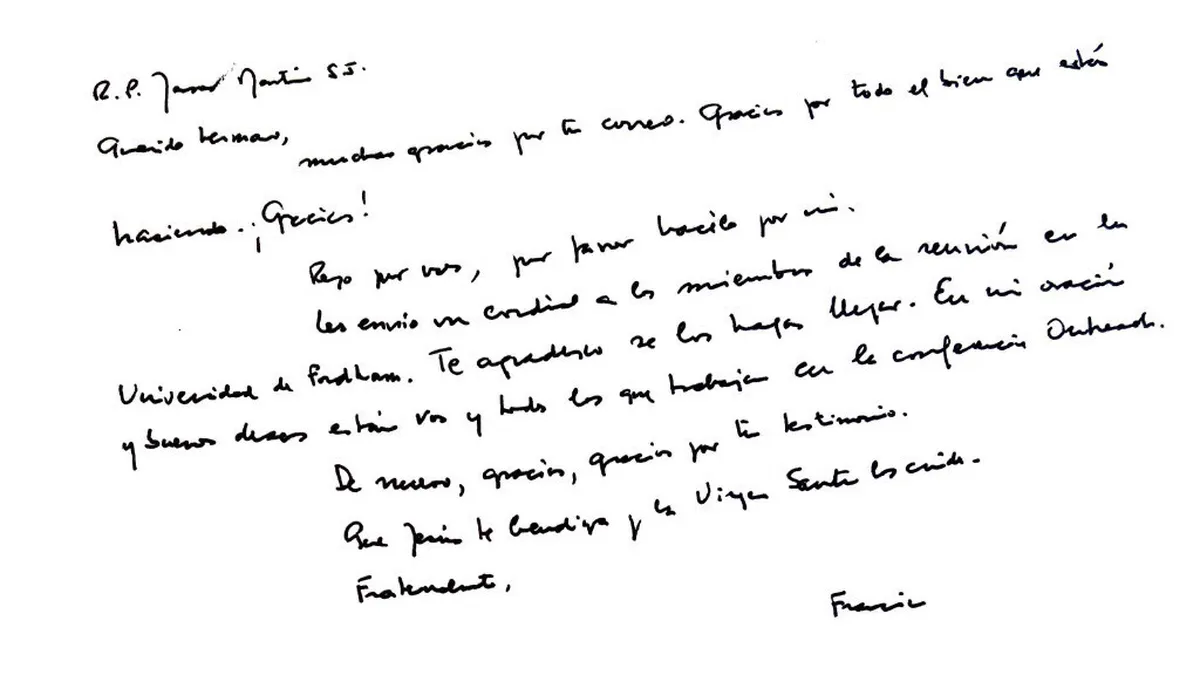 R.P. James Martin S.J.
Querido hermano,
muchas gracias por tu correo. Gracias por todo el bien que estás
haciendo. ¡Gracias!
Rezo por vos, por favor hacelo por mi.
Les envío un cordial a los miembros de la reunión en la
Universidad de Fordham. Te agradezco se los hagas llegar. En mi oración
y buenos deseos están vos y todos los que trabajan en la conferencia Outreach.
De nuevo, gracias, gracias por tu testimonio.
Que Jesús te bendiga y la Virgen Santa los cuide.
Fraternalmente,
Francisco